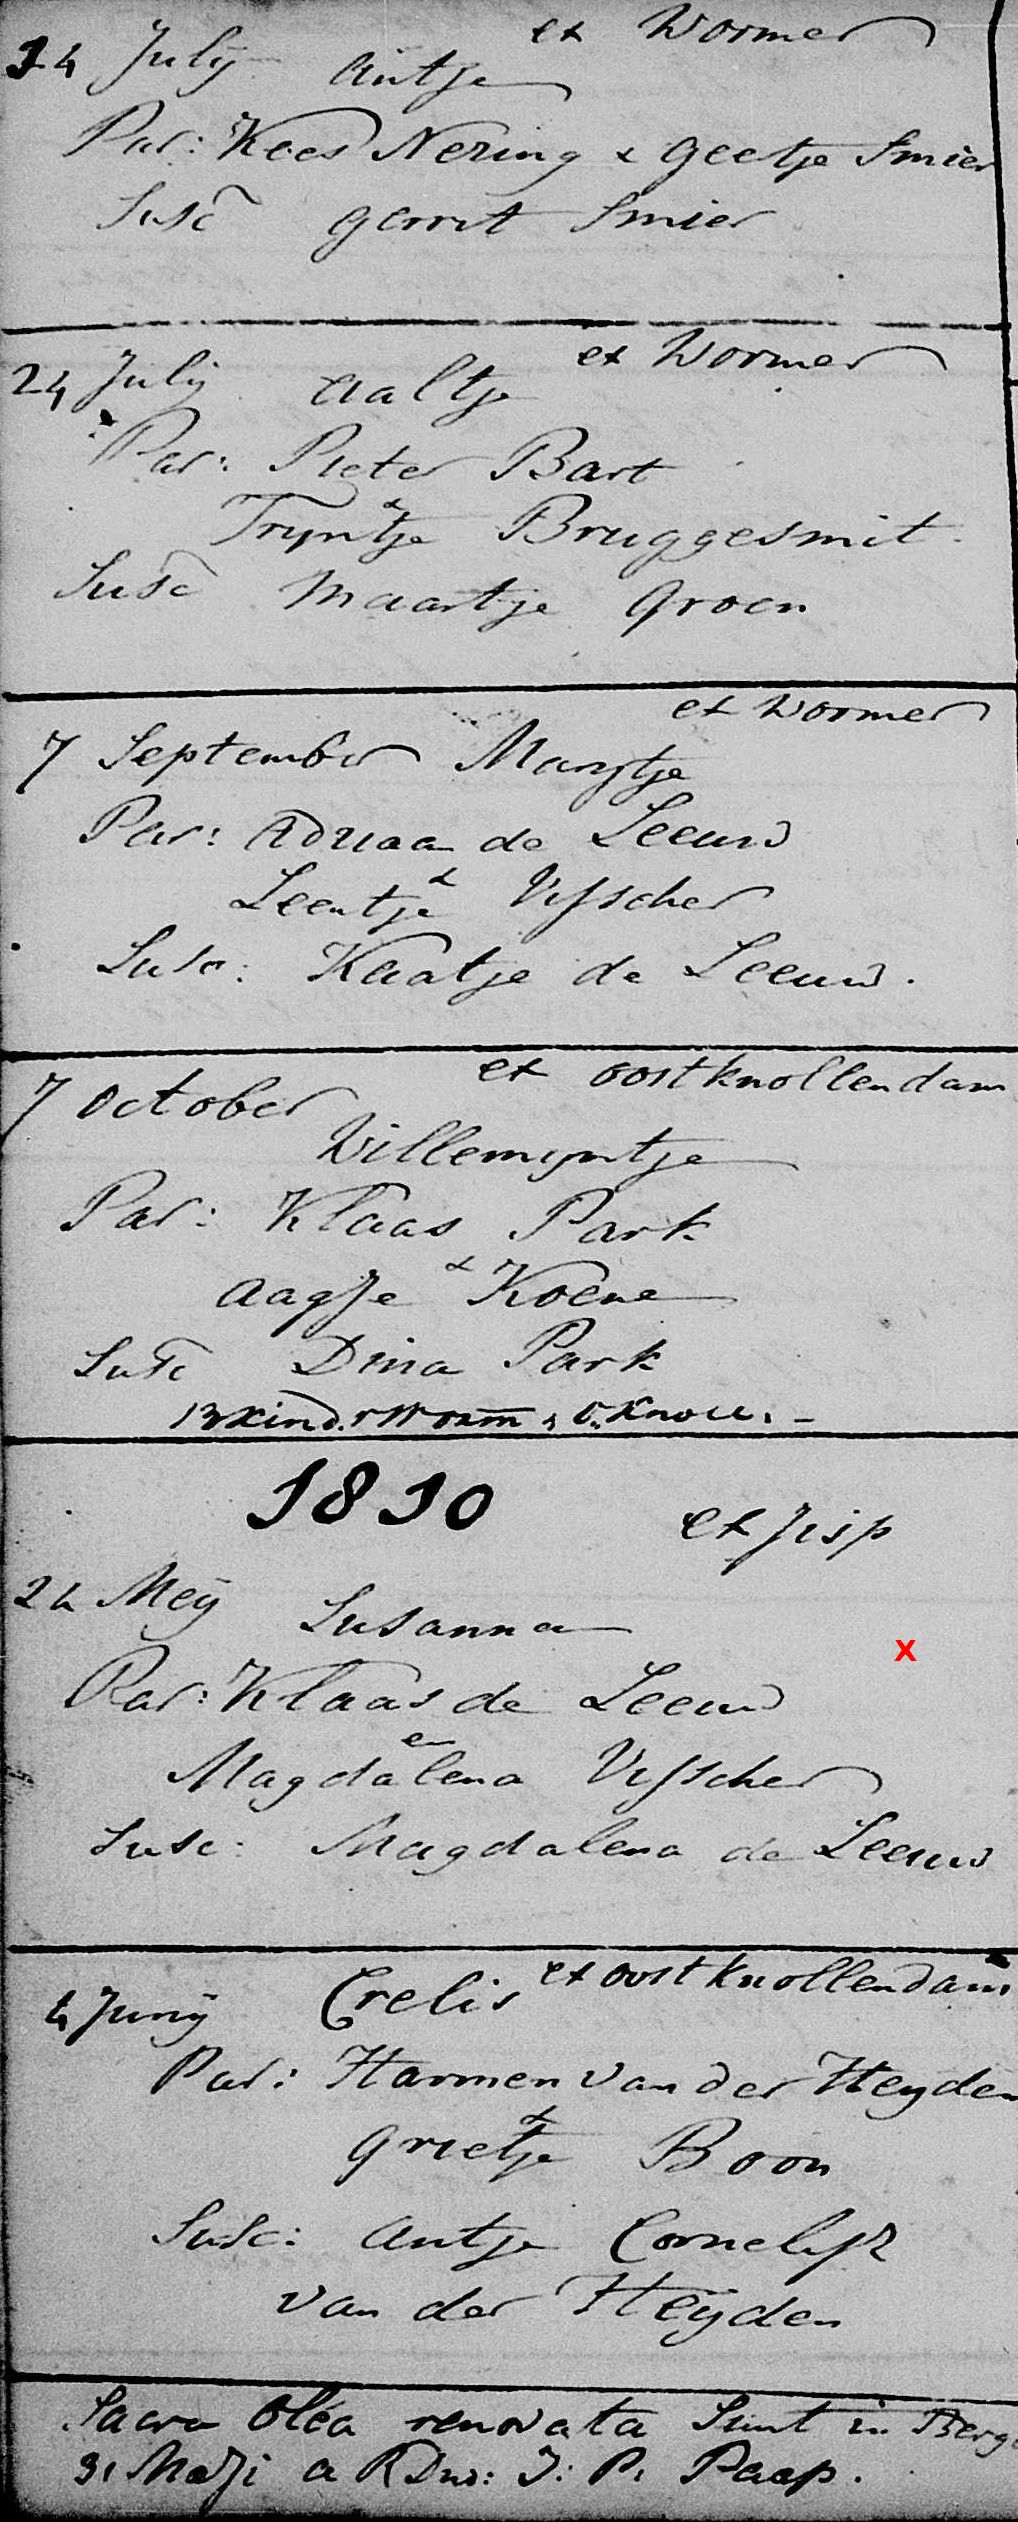 ex Wormer
14 July Antje
Par: Kees Nering & Geetje Smier
Susc Gerrit Smier
ex Wormer
24 July Aaltje
Par: Pieter Bart
&
Tryntje Bruggesmit
Susc Maartje Groen
ex Wormer
7 September Marytje
Par: Adriaan de Leeuw
&
Leentje Visscher
Susc: Kaatje de Leeuw.
ex Oostknollendam
7 October
Willemyntje
Par: Klaas Park
&
Aagje Koene
Susc Dina Park
13 kind. Worm & O. Knoll. –
1810
ex Jisp
24 Mey Susanna
X
Par: Klaas de Leeuw
en
Magdalena Visscher
Susc: Magdalena de Leeuw
ex Oostknollendam
4 Juny Crelis
Par: Harmen van der Heyden
&
Grietje Boon
Susc: Antje Cornelisz
van der Heyden
Sacra Olea renovata sunt in Berge
31 Maji a RDno: J: P: Paap.